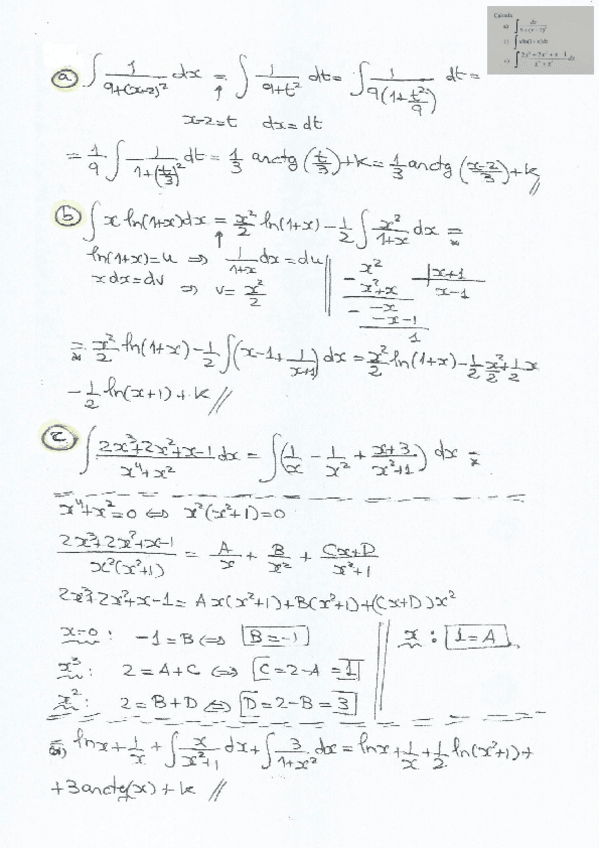 Calcula:
a) ∫ dx / 9+(x-2)²
b) ∫ x ln(1+x)dx
c) ∫ 2x³+2x²+x-1 / x⁴+x² dx
a) ∫ 1/(9+(x-2)²) dx = ∫ 1/(9+t²) dt = ∫ 1/(9(1+t²/9)) dt =
x-2=t dx=dt
= 1/9 ∫ 1/(1+(t/3)²) dt = 1/3 arctg (t/3)+K = 1/3 arctg (x-2/3)+K //
b) ∫ x ln(1+x)dx = x²/2 ln(1+x) - 1/2 ∫ x²/(1+x) dx =*
ln(1+x)=u ⇒ 1/(1+x) dx=du
x dx=dv ⇒ v= x²/2
x² |x+1
- x²+x x-1
-x
- -x-1
1
=* x²/2 ln(1+x) - 1/2 ∫ (x-1+ 1/(x+1)) dx = x²/2 ln(1+x) - 1/2 x²/2 + 1/2 x
- 1/2 ln(x+1) + K //
c) ∫ 2x³+2x²+x-1 / x⁴+x² dx = ∫ (1/x - 1/x² + x+3/x²+1) dx =*
x⁴+x²=0 ⇔ x²(x²+1)=0
2x³+2x²+x-1 / x²(x²+1) = A/x + B/x² + Cx+D/x²+1
2x³+2x²+x-1 = Ax(x²+1)+B(x²+1)+(Cx+D)x²
x=0: -1=B ⇔ B=-1
x: 1=A
x³: 2=A+C ⇔ C=2-A=1
x²: 2=B+D ⇔ D=2-B=3
= lnx + 1/x + ∫ x/(x²+1) dx + ∫ 3/(1+x²) dx = lnx + 1/x + 1/2 ln(x²+1) +
+3arctg(x)+K //